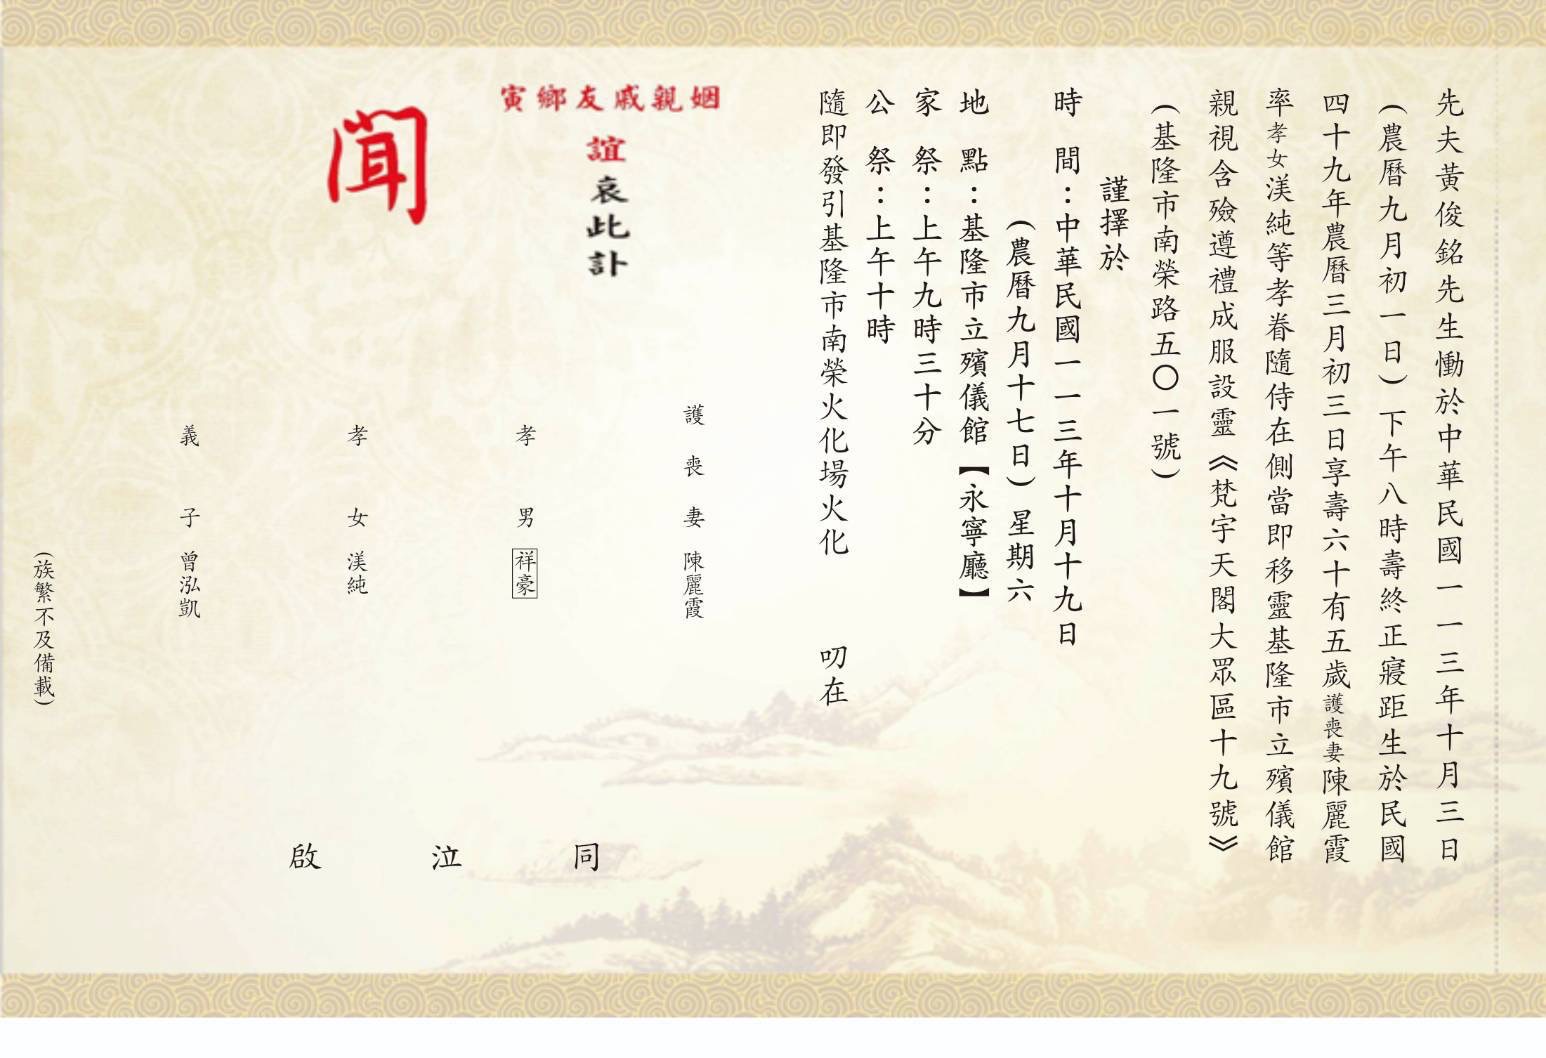 先夫黃俊銘先生慟於中華民國一一三年十月三日
(農曆九月初一日)下午八時壽終正寢距生於民國
四十九年農曆三月初三日享壽六十有五歲護喪妻陳麗霞
率孝女渼純等孝眷隨侍在側當即移靈基隆市立殯儀館
親視含殮遵禮成服設靈《梵宇天閣大眾區十九號》
(基隆市南榮路五〇一號)
謹擇於
時間：中華民國一一三年十月十九日
(農曆九月十七日)星期六
地點：基隆市立殯儀館【永寧廳】
家祭：上午九時三十分
公祭：上午十時
隨即發引基隆市南榮火化場火化 叨在
姻親戚友鄉寅
誼
哀此訃
聞
護喪妻 陳麗霞
孝男 祥豪
孝女 渼純
義子 曾泓凱
(族繁不及備載)
同泣啟